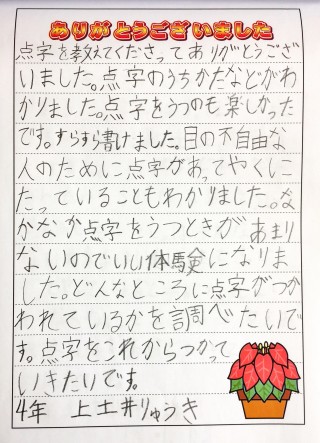 ありがとうございました
点字を教えてくださってありがとうござ
いました。点字のうちかたなどがわ
かりました。点字をうつのも楽しかった
です。すらすら書けました。目の不自由な
人のために点字があってやくに
たっていることもわかりました。な
かなか点字をうつときがあまり
ないのでいい体験になりま
した。どんなところに点字がつか
われているかを調べたいで
す。点字をこれからつかって
いきたいです。
4年 上土井りゅうき